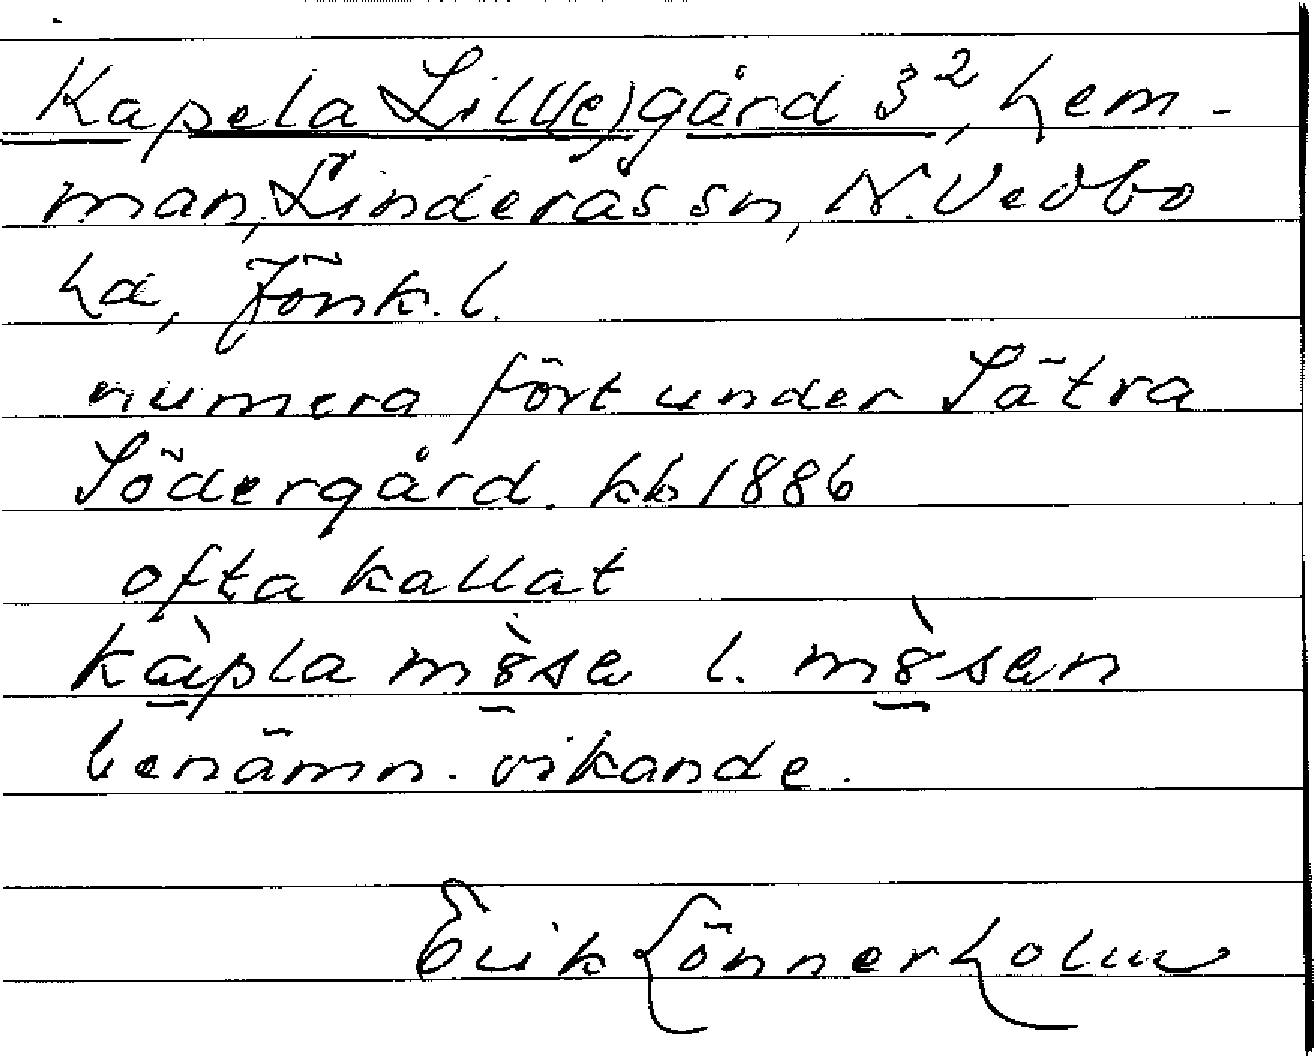 Kapela Lill(e)gård 3², hem-
man, Linderås sn, N. Vedbo
hd, Jönk. l.
numera fört under Sätra
Södergård. kb 1886
ofta kallat
kàpla mò̈sa l. mò̈san
benämn. vikande.
Erik Lönnerholm